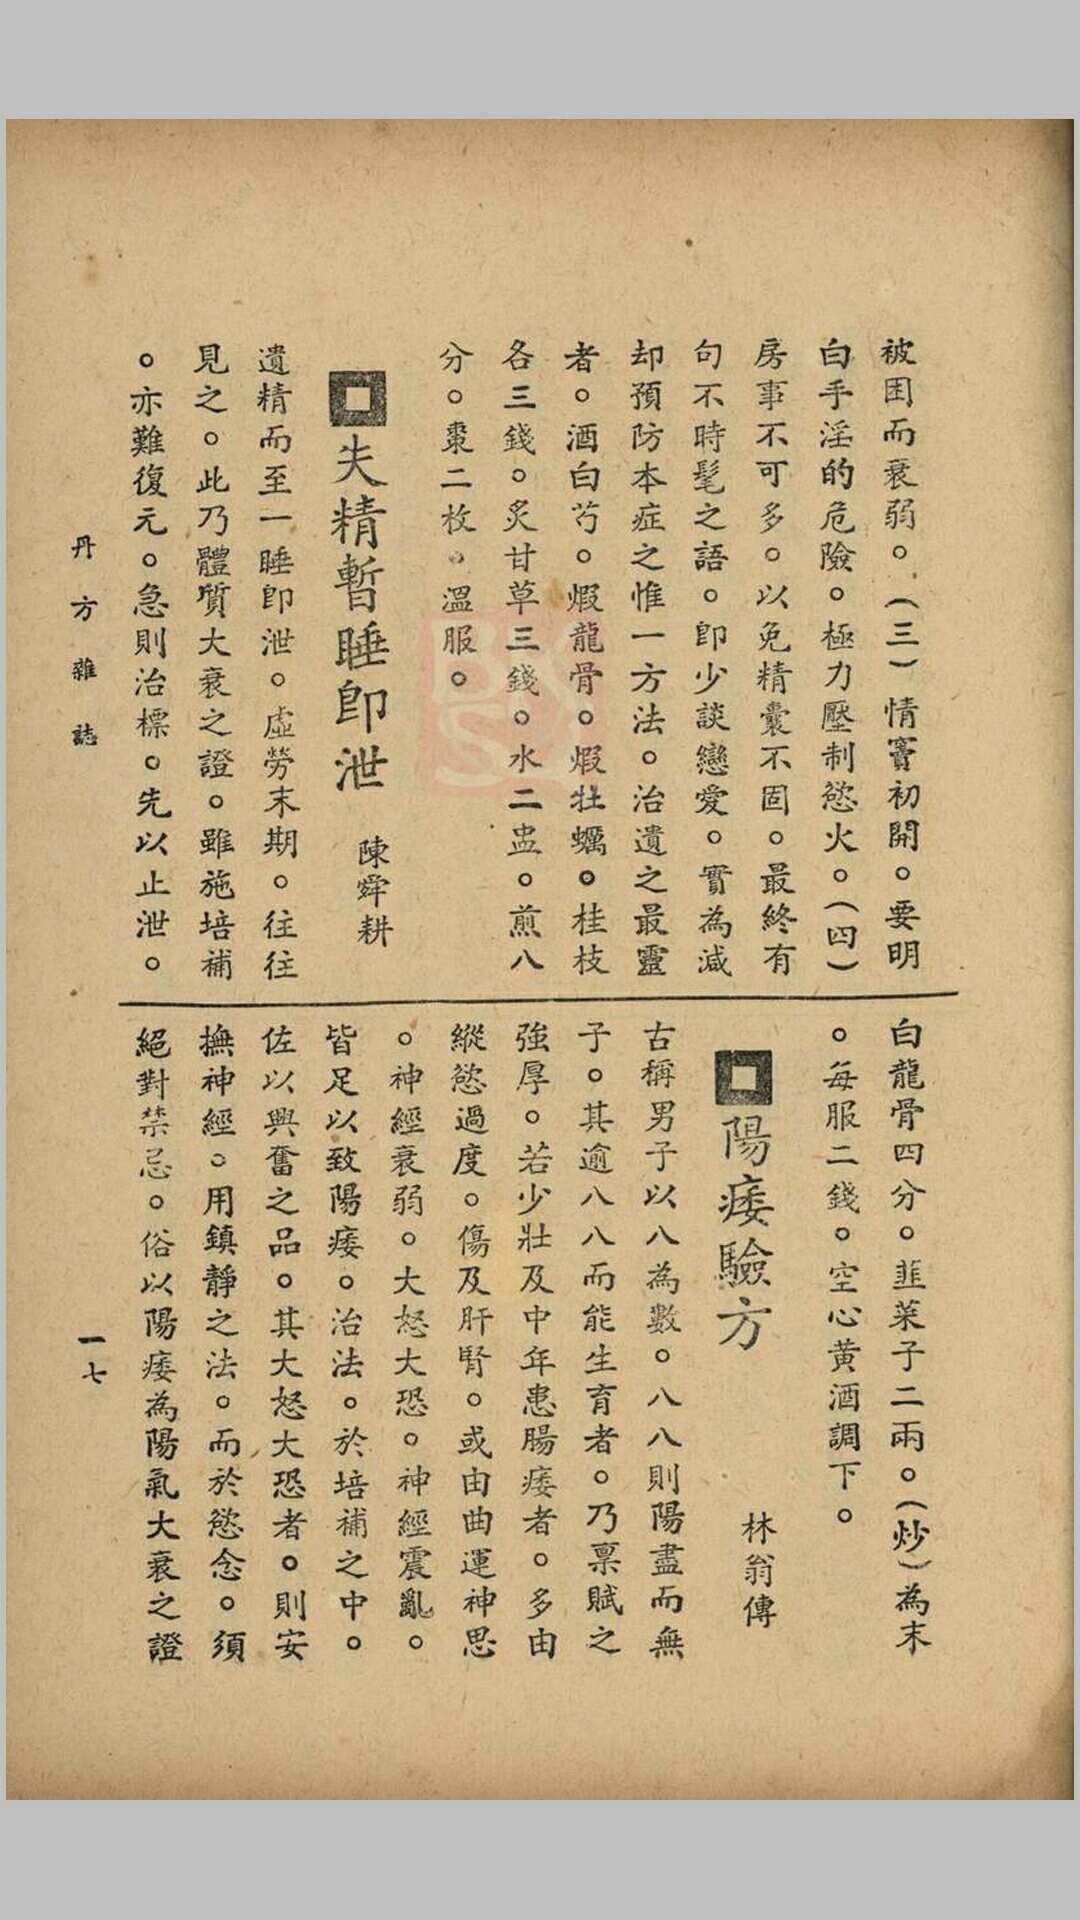 被困而衰弱。(三)情竇初開。要明
白手淫的危險。極力壓制慾火。(四)
房事不可多。以免精囊不固。最終有
句不時髦之語。卽少談戀愛。實為減
却預防本症之惟一方法。治遺之最靈
者。酒白芍。煆龍骨。煆牡蠣。桂枝
各三錢。炙甘草三錢。水二盅。煎八
分。棗二枚。溫服。
失精暫睡卽泄 陳舜耕
遺精而至一睡卽泄。虛勞末期。往往
見之。此乃體質大衰之證。雖施培補
。亦難復元。急則治標。先以止泄。
白龍骨四分。韭菜子二兩。(炒)為末
。每服二錢。空心黄酒調下。
陽痿驗方 林翁傳
古稱男子以八為數。八八則陽盡而無
子。其逾八八而能生育者。乃禀賦之
強厚。若少壯及中年患腸痿者。多由
縱慾過度。傷及肝腎。或由曲運神思
。神經衰弱。大怒大恐。神經震亂。
皆足以致陽痿。治法。於培補之中。
佐以興奮之品。其大怒大恐者。則安
撫神經。用鎮靜之法。而於慾念。須
絕對禁忌。俗以陽痿為陽氣大衰之證
丹方雜誌
一七